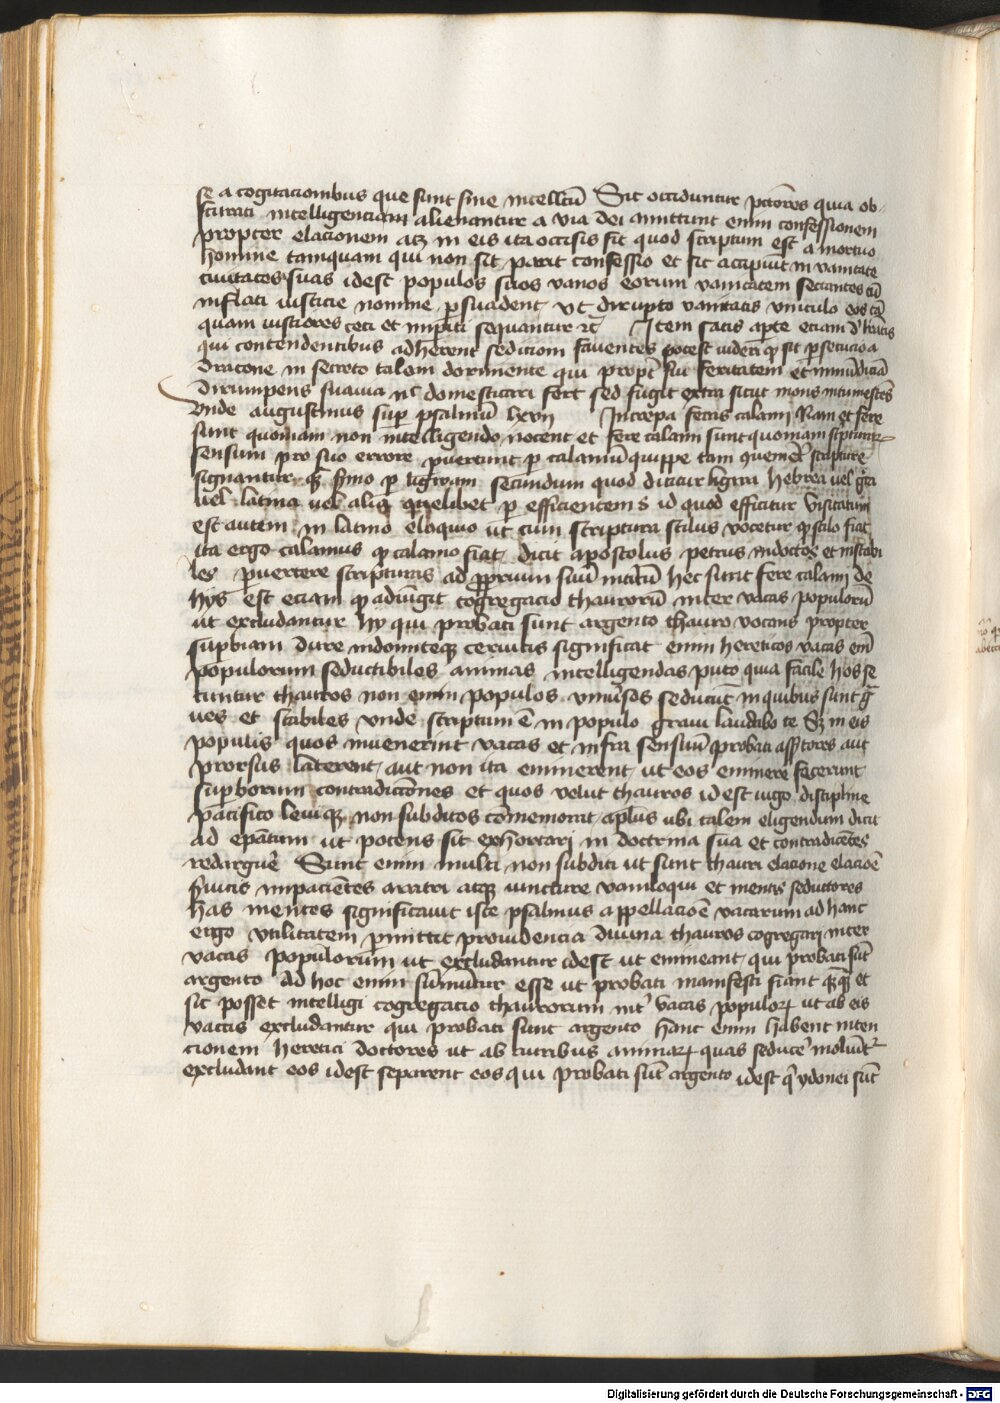 se a cogitacionibus que sunt sine intellctū Sic occiduntur pctōres quia ob-
scurati intelligenciam alienantur a via dei amittunt enim confessionem
propter elacionem atqꝫ in eis ita occisis fit quod scriptum est a mortuo
homine tamquam qui non sit parit confessio et sic accipiūt in vanitate
ciuitates suas idest populos suos vanos eorum vanitatem sectantes cū
inflati iusticie nomine ꝑsuadent vt dirupto vanitatis vinculo eos tā
quam iustiores ceci et impiti sequantur ꝛc Item satis apte eciam d
qui contendentibus adherent sedicioni fauentes potest videri ꝙ sit ꝑsecucio a
dracone in secreto talem dormiente qui propt sui feritatem et inmūdiciā
dirumpens suauia nc domesticari fert sed fugit extra sicut mons
Vnde augustinus suꝑ psalmū lxvij Increpa feras calami Nam et fere
sunt quoniam non intelligendo nocent et fere calami sunt quoniam scpturaꝝ
sensum pro suo errore ꝑuertunt ꝑ calamū quippe tam scripture
signantur qꝫ sermo ꝑ ligwam secundum quod dicitur ligwa hebrea vel gca
vel latina vel alia quelibet ꝑ efficientem s id quod efficitur Vsitatum
est autem in latino eloquio ut cum scriptura stilus vocetur ꝙ stilo fiat
ita ergo calamus ꝙ calamo fiat dicit apostolus petrus indoctos et instabi
les ꝑuertere scripturas ad ꝓprium suū intitū hec sunt fere calami de
hys est eciam ꝙ adiūgit cogregacio thaurorū inter vacas populorū
ut excludantur hy qui probati sunt argento thauro vocans propter
supbiam dure indomiteqꝫ ceruicis significat enim hereticos vacas em̄
populorum seductibiles animas intelligendas puto quia facile hos se
cuntur thauros non enim populos vniūsos seducūt in quibus sunt gᵃ
ues et stabiles vnde scriptum ē in populo graui laudabo te Sꝫ in eis
populis quos inuenerint vacas et infra sensuū probati assertores aut
prorsus laterent aut non ita eminerent ut eos eminere facerunt
supborum contradictōnes et quos velut thauros id est iugo discipline
pacifico leuiqꝫ non subditos cōmemorat apłus ubi talem eligendum dicit
ad epātum ut potens sit exhortari in doctrina sua et contradicētes
redarguē Sunt enim multi non subditi ut sunt thauri elacione elacōē
ceruicis impaciētes arratri atqꝫ iuncture vaniloqui et mentis seductores
has mentes significauit iste psalmus appellacōē vacarum ad hanc
ergo vtilitatem ꝑmittit prouidencia diuina thauros cogregari inter
vacas populorum ut excludantur idest ut emineant qui probati sūt
argento Ad hoc enim sinuntur esse ut probati manifesti fiant qꝫqꝫ et
sic posset intelligi cogregacio thaurorum int vacas populoꝝ ut ab eis
vaccis excludantur qui probati sunt argento hanc enim habent inten
cionem heretici doctores ut ab auribus animaꝝ quas seduce moliunt
excludant eos idest seperent eos qui probati sūt argento idest q ydonei sūt
Digitalisierung gefördert durch die Deutsche Forschungsgemeinschaft - DFG